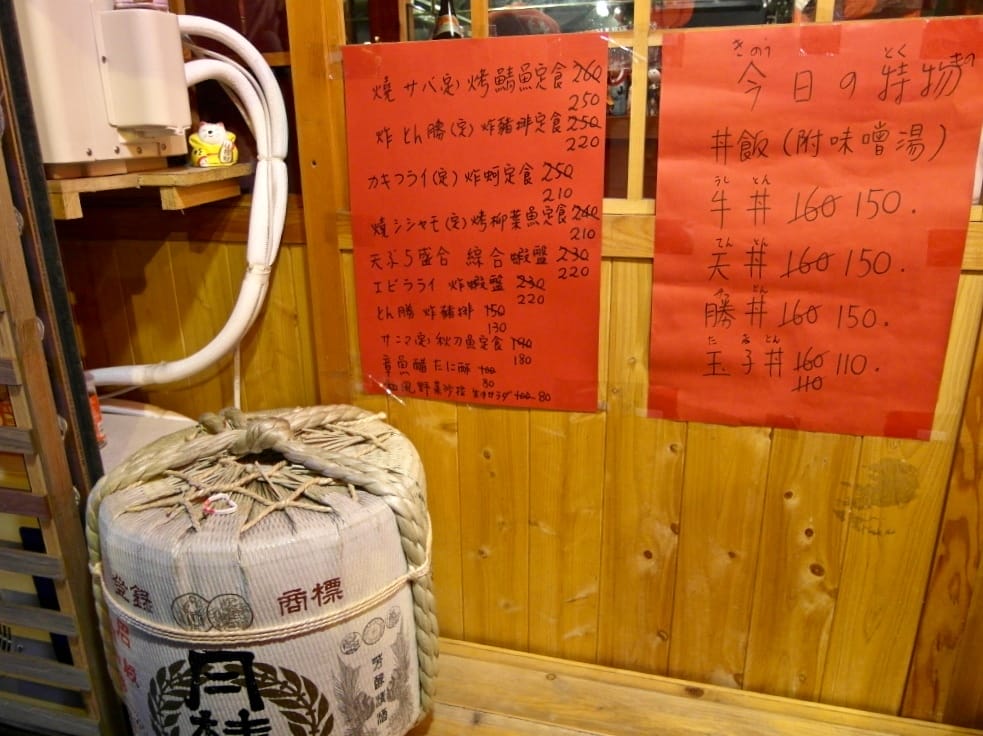 燒サバ(定)烤鯖魚定食 260
250
炸とん勝(定)炸豬排定食 250
220
カキフライ(定)炸蚵定食 250
210
燒シシャモ(定)烤柳葉魚定食 240
210
天ぷら盛合 綜合蝦盤 230
220
エビラライ 炸蝦盤 230
220
とん勝 炸豬排 150
130
サニマ(定)秋刀魚定食 190
180
章魚醋 たこ酢 100
80
和風野菜沙拉 サラダ 100 80
きのう とく きの
今日の特物
丼飯(附味噌湯)
うし とん
牛丼 160 150.
てん どん
天丼 160 150.
どん
勝丼 160 150.
たまとん
玉子丼 160 110.
110
登録 商標
月桂
芳醇清酒